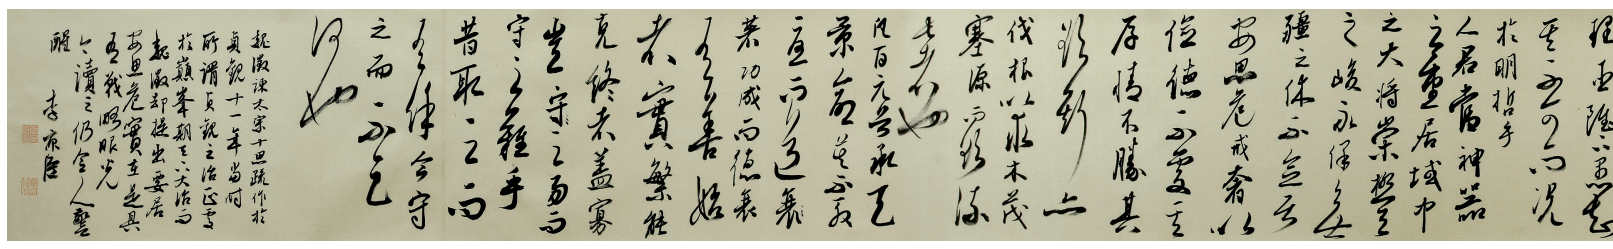 理臣雖下愚知
其不可而況
於明哲乎
人君當神器
之重居域中
之大將崇極天
之峻永保無
疆之休不念居
安思危戒奢以
儉德不處其
厚情不勝其
欲斯亦
伐根以求木茂
塞源而欲流
長者也
凡百元首承天
景命莫不殷
憂而道
著功成而德衰
有善始
者實繁能
克終者蓋寡
豈之易而
守之難乎
昔取之而
有餘今守
之而不足
何也
魏徵諫太宗十思疏作於
貞觀十一年當時
所謂貞觀之治正處
於巔峯期天下大治而
魏徵却提出要居
安思危實在是具
有戰略眼光
今讀之仍令人警
醒
李